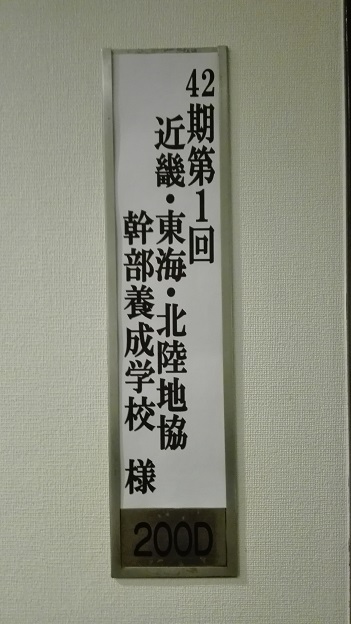 42期第1回
近畿・東海・北陸地協
幹部養成学校 様
200D